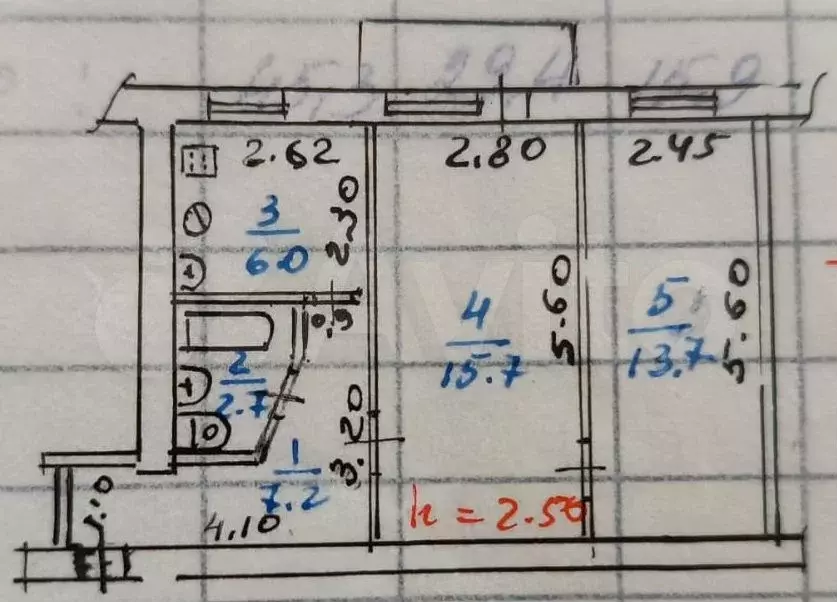 45,3 29,4 15,9
2.62
2.80
2.45
3
6.0
2.30
4
15.7
5.60
5
13.7
5.60
0.9
2
2.7
1
7.2
3.20
1.10
4.10
h = 2.50
Avito